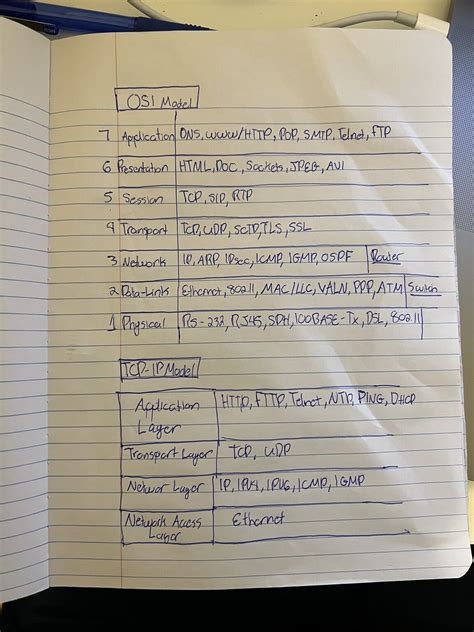 OSI Model
7 Application DNS, WWW/HTTP, POP, SMTP, Telnet, FTP
6 Presentation HTML, DOC, Sockets, JPEG, AVI
5 Session TCP, SIP, RTP
4 Transport TCP, UDP, SCTP, TLS, SSL
3 Network IP, ARP, IPsec, ICMP, IGMP, OSPF Router
2 Data-Link Ethernet, 802.11, MAC/LLC, VALN, PPP, ATM Switch
1 Physical RS-232, RJ45, SDH, 100BASE-Tx, DSL, 802.11
TCP-IP Model
Application HTTP, FTTP, Telnet, NTP, PING, DHCP
Layer
Transport Layer TCP, UDP
Networ Layer IP, IPV4, IPV6, ICMP, IGMP
Network Access Ethernet
Layer